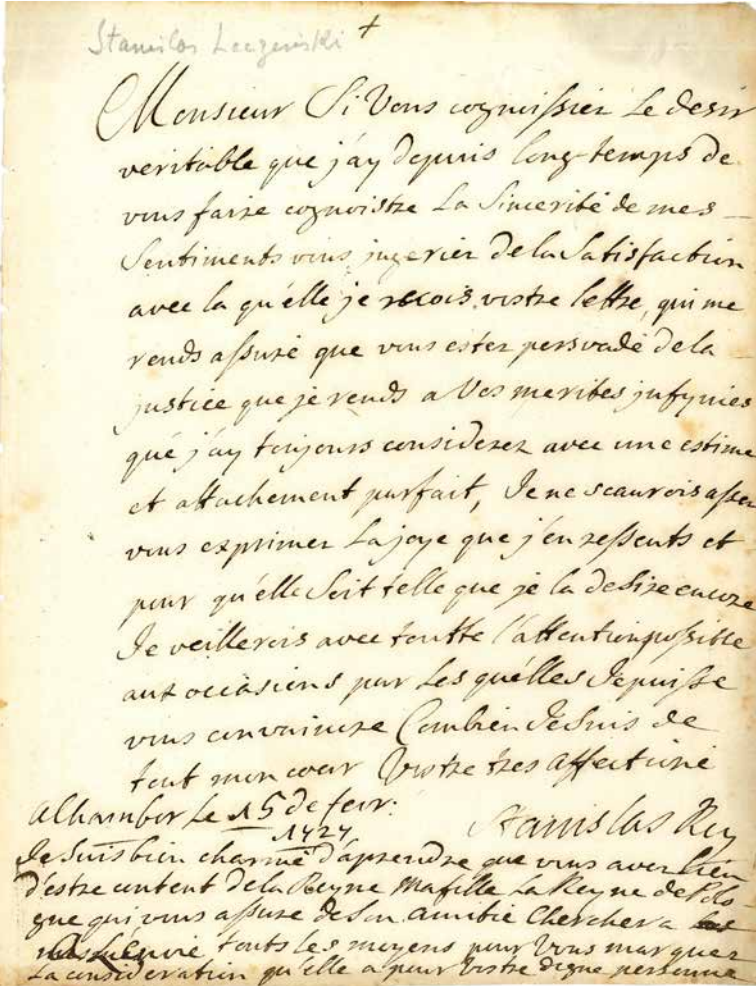 Stanislas Leczinski +
Monsieur Si Vous cognoissiez Le desir
veritable que j'ay depuis long-temps de
vous faire cognoistre La Sincerité de mes
Sentiments vous jugeriez de la Satisfaction
avec la qu'elle je recois vostre lettre, qui me
rends assuré que vous estez persvadé de la
justice que je rends a Vos merites
que j'ay toujours considerez avec une estime
et attachement parfait, Je ne scaurois assez
vous exprimer La joye que j'en ressents et
pour qu'elle Soit telle que je la desire encore
Je veillerois avec toutte l'attention possible
aux occasions par Les qu'elles Je puisse
vous convaincre Combien Je Suis de
tout mon coeur Vostre tres affectioné
a Chambor Le 15 de fevr:
1727 Stanislas Roy
Je Suis bien charmé d'aprendre que vous avez lieu
d'estre content de la Reyne Ma fille La Reyne de Polo
gne qui vous assure de Son amitié Cherchera
touts les moyens pour Vous marquer
La consideration qu'elle a pour Vostre digne personne